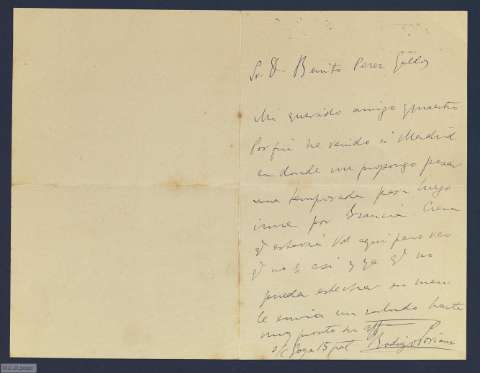 Sr. D. Benito Perez Galdós
Mi querido amigo y maestro
Por fin he venido á Madrid
en donde me propongo pasar
una temporada para luego
irme por Francia. Creia
qe. estaria Vd aqui pero veo
qe. no es asi y ya qe. no
puedo estrechar su mano
le envio un saludo hasta
muy pronto su
s/c Goya 15 pal Rodrigo Soriano